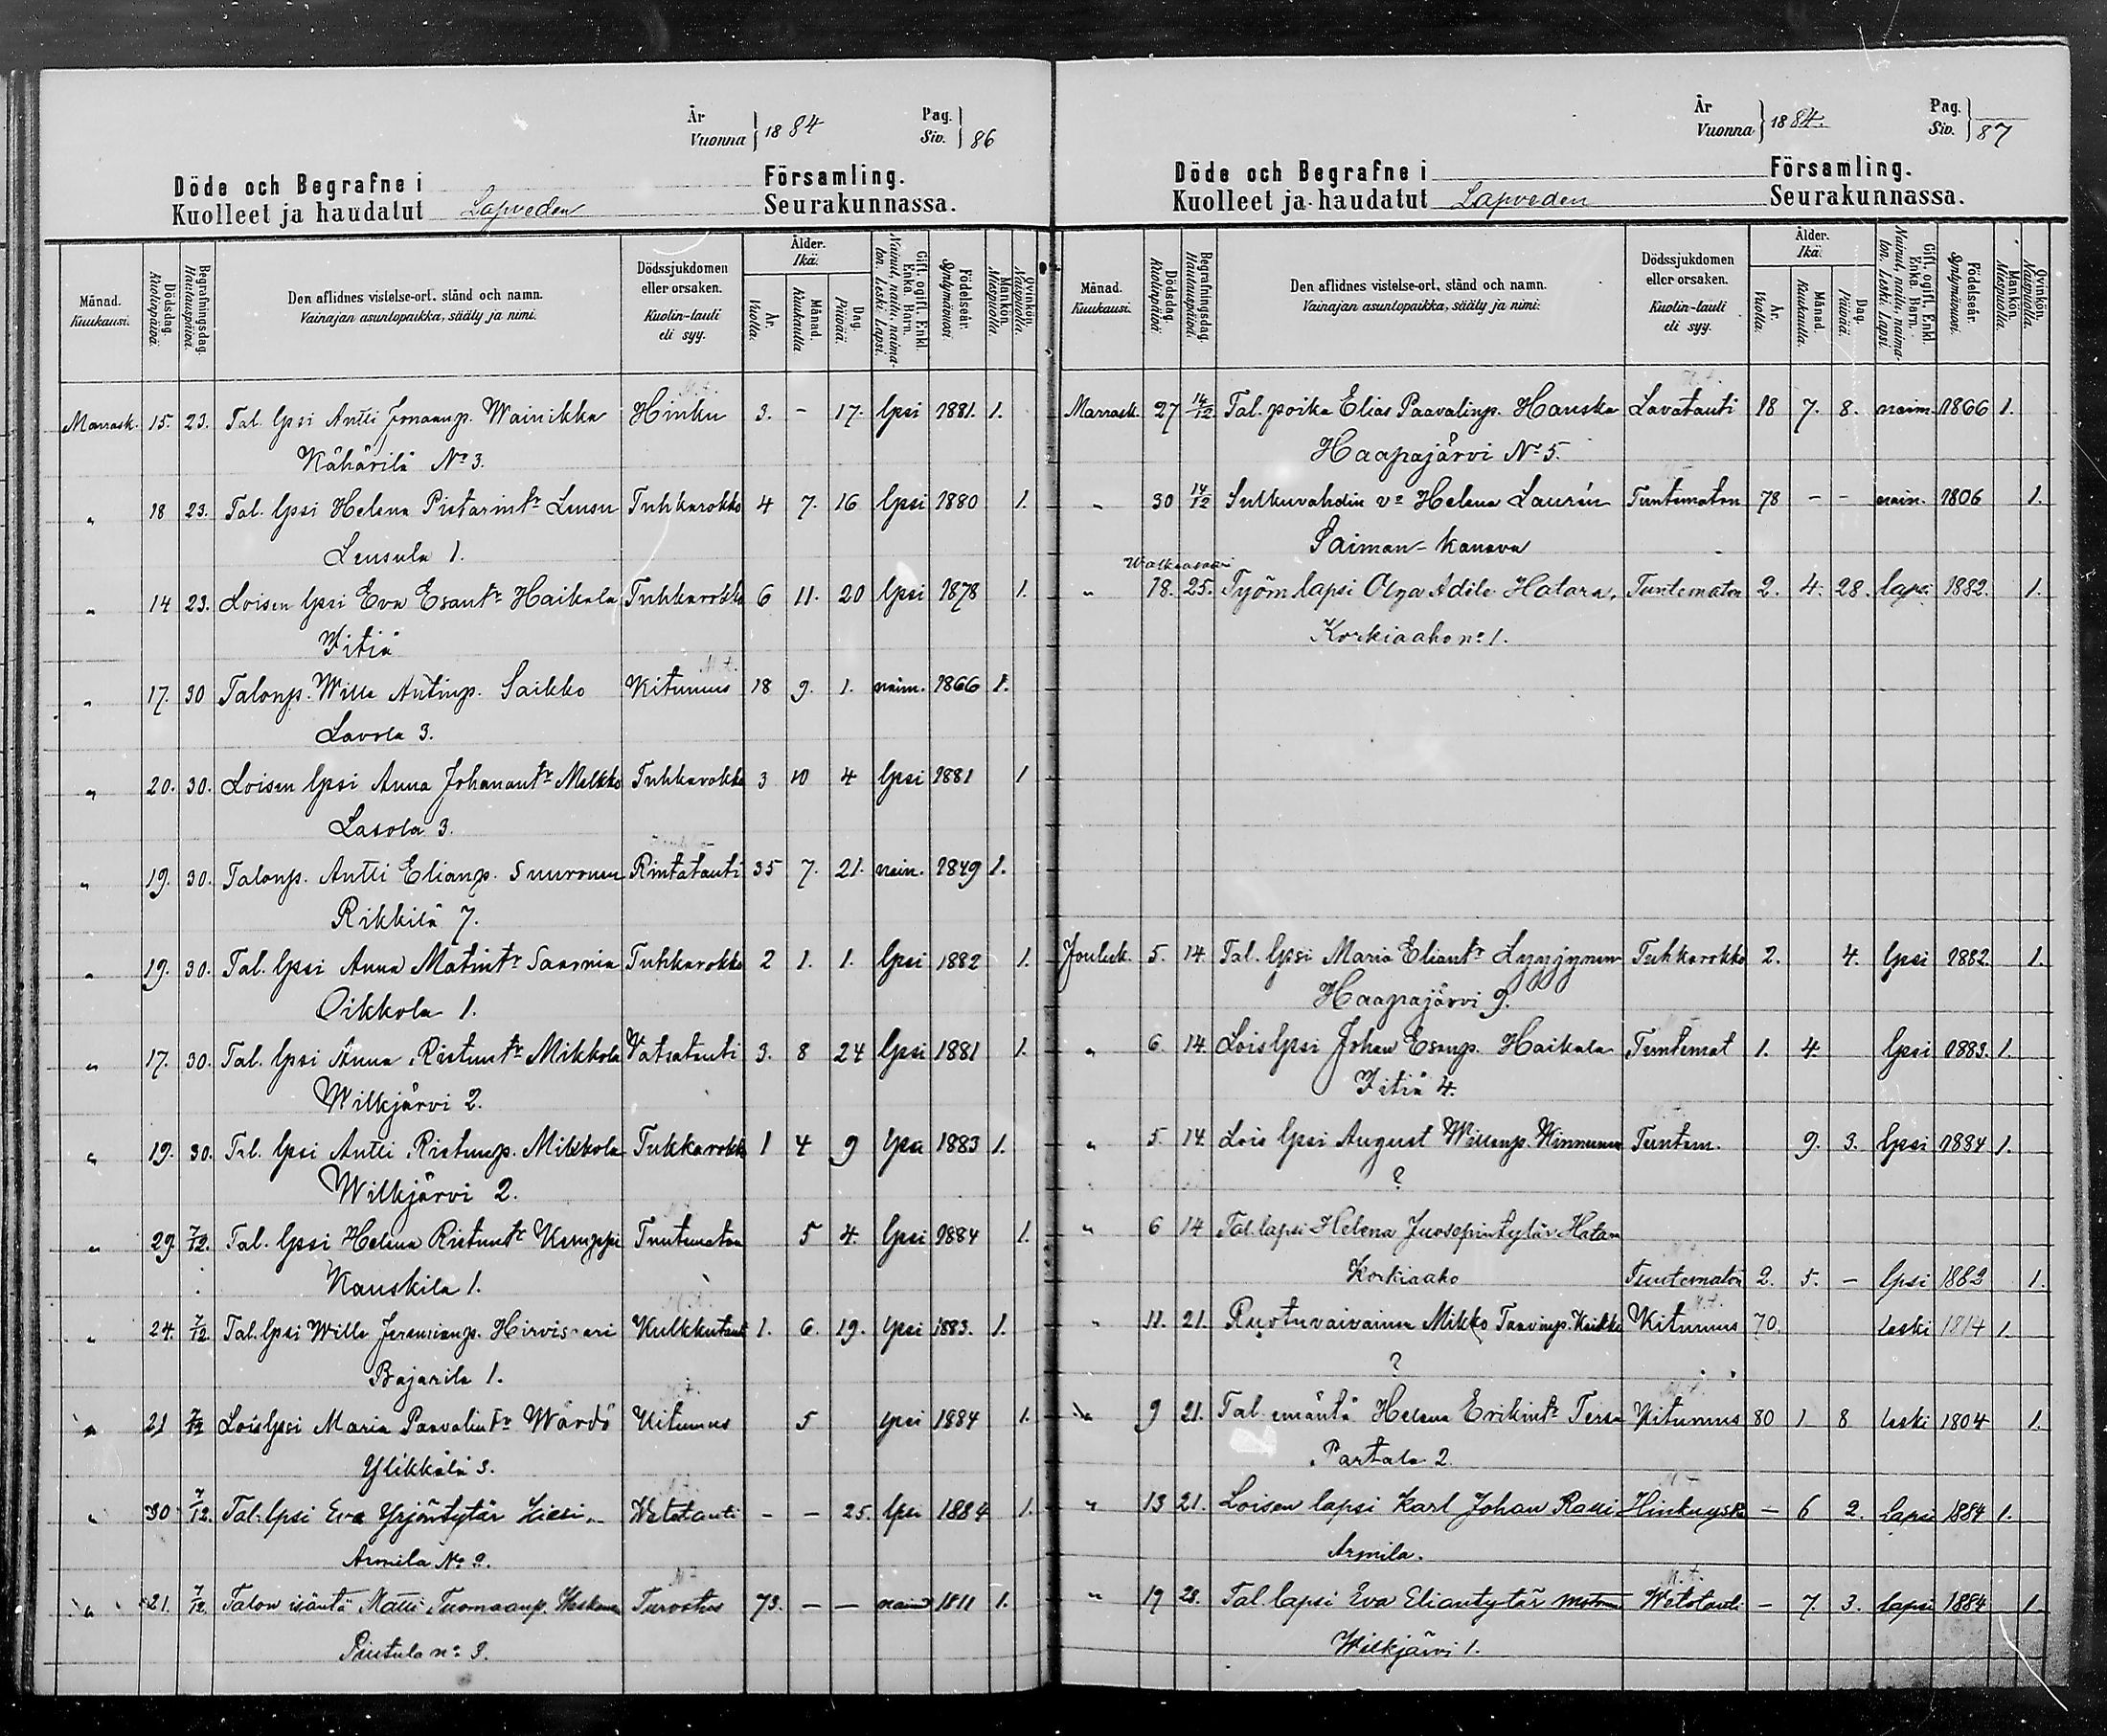 År
Vuonna } 1884
Pag.
Siv. } 86
Döde och Begrafne i Församling.
Kuolleet ja haudatut Lapveden Seurakunnassa.
Månad. Kuukausi.
Dödsdag. Kuolinpäivä.
Begrafningsdag. Hautauspäivä.
Den aflidnes vistelse-ort, stånd och namn.
Vainajan asuntopaikka, sääty ja nimi.
Dödssjukdomen eller orsaken.
Kuolin-tauti eli syy.
Ålder. Ikä.
År. Vuotta.
Månad. Kuukautta
Dag. Päivää.
Gift, ogift, Enkl. Enka. Barn.
Nainut, naitu, naimaton. Leski. Lapsi.
Födelseår. Syntymävuosi.
Mankön. Miespuolia.
Qvinkön. Naispuolia.
Marrask. 15. 23. Tal. lpsi Antti Jonaanp. Wainikka Hinku 3. - 17. lpsi 1881. 1.
Kähärilä No 3.
" 18 23. Tal. lpsi Helena Pietarintr Lensu Tuhkarokko 4 7. 16 lpsi 1880 1.
Lensula 1.
" 14 23. Loisen lpsi Eva Esantr Haikala Tuhkarokko 6 11. 20 lpsi 1878 1.
Yitiä
" 17. 30 Talonp. Wille Antinp. Saikko Kitumus 18 9. 1. naim. 1866 1.
Lavola 3.
" 20. 30. Loisen lpsi Anna Johanantr Melkko Tuhkarokko 3 10 4 lpsi 1881 1
Lasola 3.
" 19. 30. Talonp. Antti Elianp. Suuronen Rintatauti 35 7. 21. nain. 1849 1.
Rikkilä 7.
" 19. 30. Tal. lpsi Anna Matintr Saarnia Tuhkarokko 2 1. 1. lpsi 1882 1.
Oikkola 1.
" 17. 30. Tal. lpsi Anna Ristuntr Mikkola Vatsatauti 3. 8 24 lpsi 1881 1.
Wilkjärvi 2.
" 19. 30. Tal. lpsi Antti Ristunp. Mikkola Tuhkarokk 1 4 9 lpsi 1883 1.
Wilkjärvi 2.
" 29. 7/12. Tal. lpsi Helena Ristuntr Kemppi Tuntematon 5 4. lpsi 1884 1.
Kauskila 1.
" 24. 7/12. Tal. lpsi Wille Jeremianp. Hirvisaari Kulkkutauti 1. 6. 19. lpsi 1883. 1.
Bajarila 1.
" 21 7/12 Loislpsi Maria Paavalintr Wärdö Kitumus 5 lpsi 1884 1.
Ylikkälä 3.
" 30 7/12. Tal. lpsi Eva Yrjöntytär Wetotauti - - 25. lpsi 1884 1.
Armila No 2.
" 21. 7/12. Talon isäntä Matti Tuomaanp. Turvotus 73. - - nain 1811 1.
no 3.
År
Vuonna } 1884.
Pag.
Siv. } 87
Döde och Begrafne i Församling.
Kuolleet ja haudatut Lapveden Seurakunnassa.
Månad. Kuukausi.
Dödsdag. Kuolinpäivä.
Begrafningsdag. Hautauspäivä.
Den aflidnes vistelse-ort, stånd och namn.
Vainajan asuntopaikka, sääty ja nimi.
Dödssjukdomen eller orsaken.
Kuolin-tauti eli syy.
Ålder. Ikä.
År. Vuotta.
Månad. Kuukautta.
Dag. Päivää.
Gift, ogift, Enkl. Enka. Barn.
Nainut, naitu, naimaton. Leski. Lapsi.
Födelseår. Syntymävuosi.
Mankön. Miespuolia.
Qvinkön. Naispuolia.
Marrask. 27 14/12 Tal. poika Elias Paavalinp. Hanska Lavatauti 18 7. 8. naim. 1866 1.
Haapajärvi No 5.
" 30 14/12 Sulkuvahdin vo Helena Laurén Tuntematon 78 - - nain. 1806 1.
Saiman-kanava
" 18. 25. Työm lapsi Olga Adile Hatara, Tuntematon 2. 4. 28. lapsi 1882. 1.
Korkiaaho no 1.
Jouluk. 5. 14. Tal. lpsi Maria Eliantr Lyyjynen Tuhkarokko 2. 4. lpsi 1882. 1.
Haapajärvi 9.
" 6. 14. Loislpsi Johan Esanp. Haikala Tuntemat 1. 4. lpsi 1883. 1.
Yitiä 4.
" 5. 14. Lois lpsi August Willenp. Kinnunen Tuntem. 9. 3. lpsi 1884 1.
?
" 6 14 Tal. lapsi Helena Juosepintytär Hatara
Korkiaaho Tuntematon 2. 5. - lpsi 1882 1.
" 11. 21. Ruotuvaivainen Mikko Taavinp. Kitumus 70. leski 1814 1.
?
" 9 21. Tal emäntä Helena Erikintr Kitumus 80 1. 8 leski 1804 1.
Partala 2.
" 13 21. Loisen lapsi Karl Johan Ratti Hinkuyskä - 6 2. lapsi 1884 1.
Armila.
" 19 28. Tal lapsi Eva Eliantytär Wetotauti - 7. 3. lapsi 1884 1.
Wilkjärvi 1.